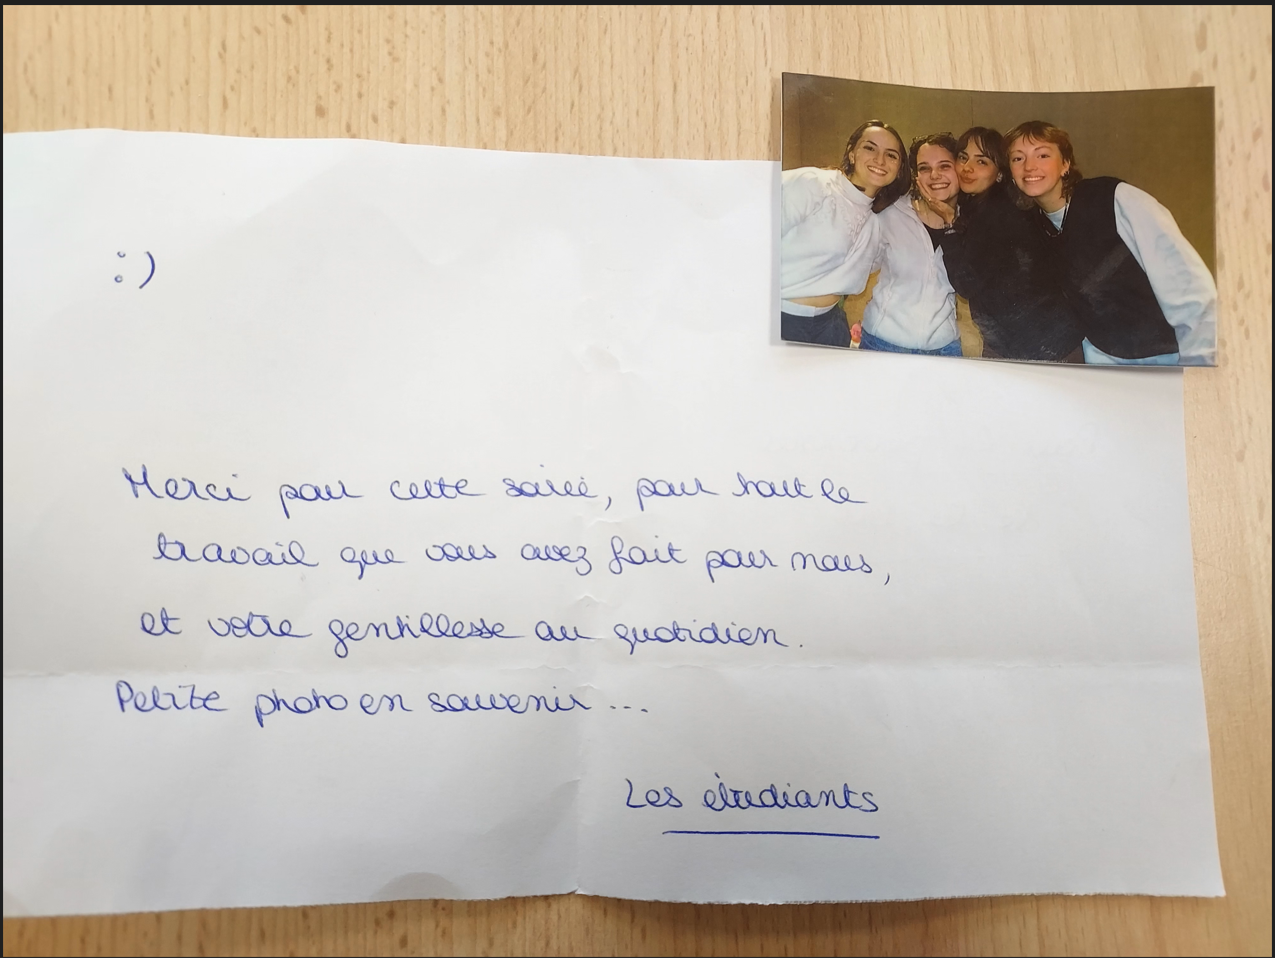 :)
Merci pour cette soirée, pour tout le
travail que vous avez fait pour nous,
et votre gentillesse au quotidien.
Petite photo en souvenir...
Les étudiants